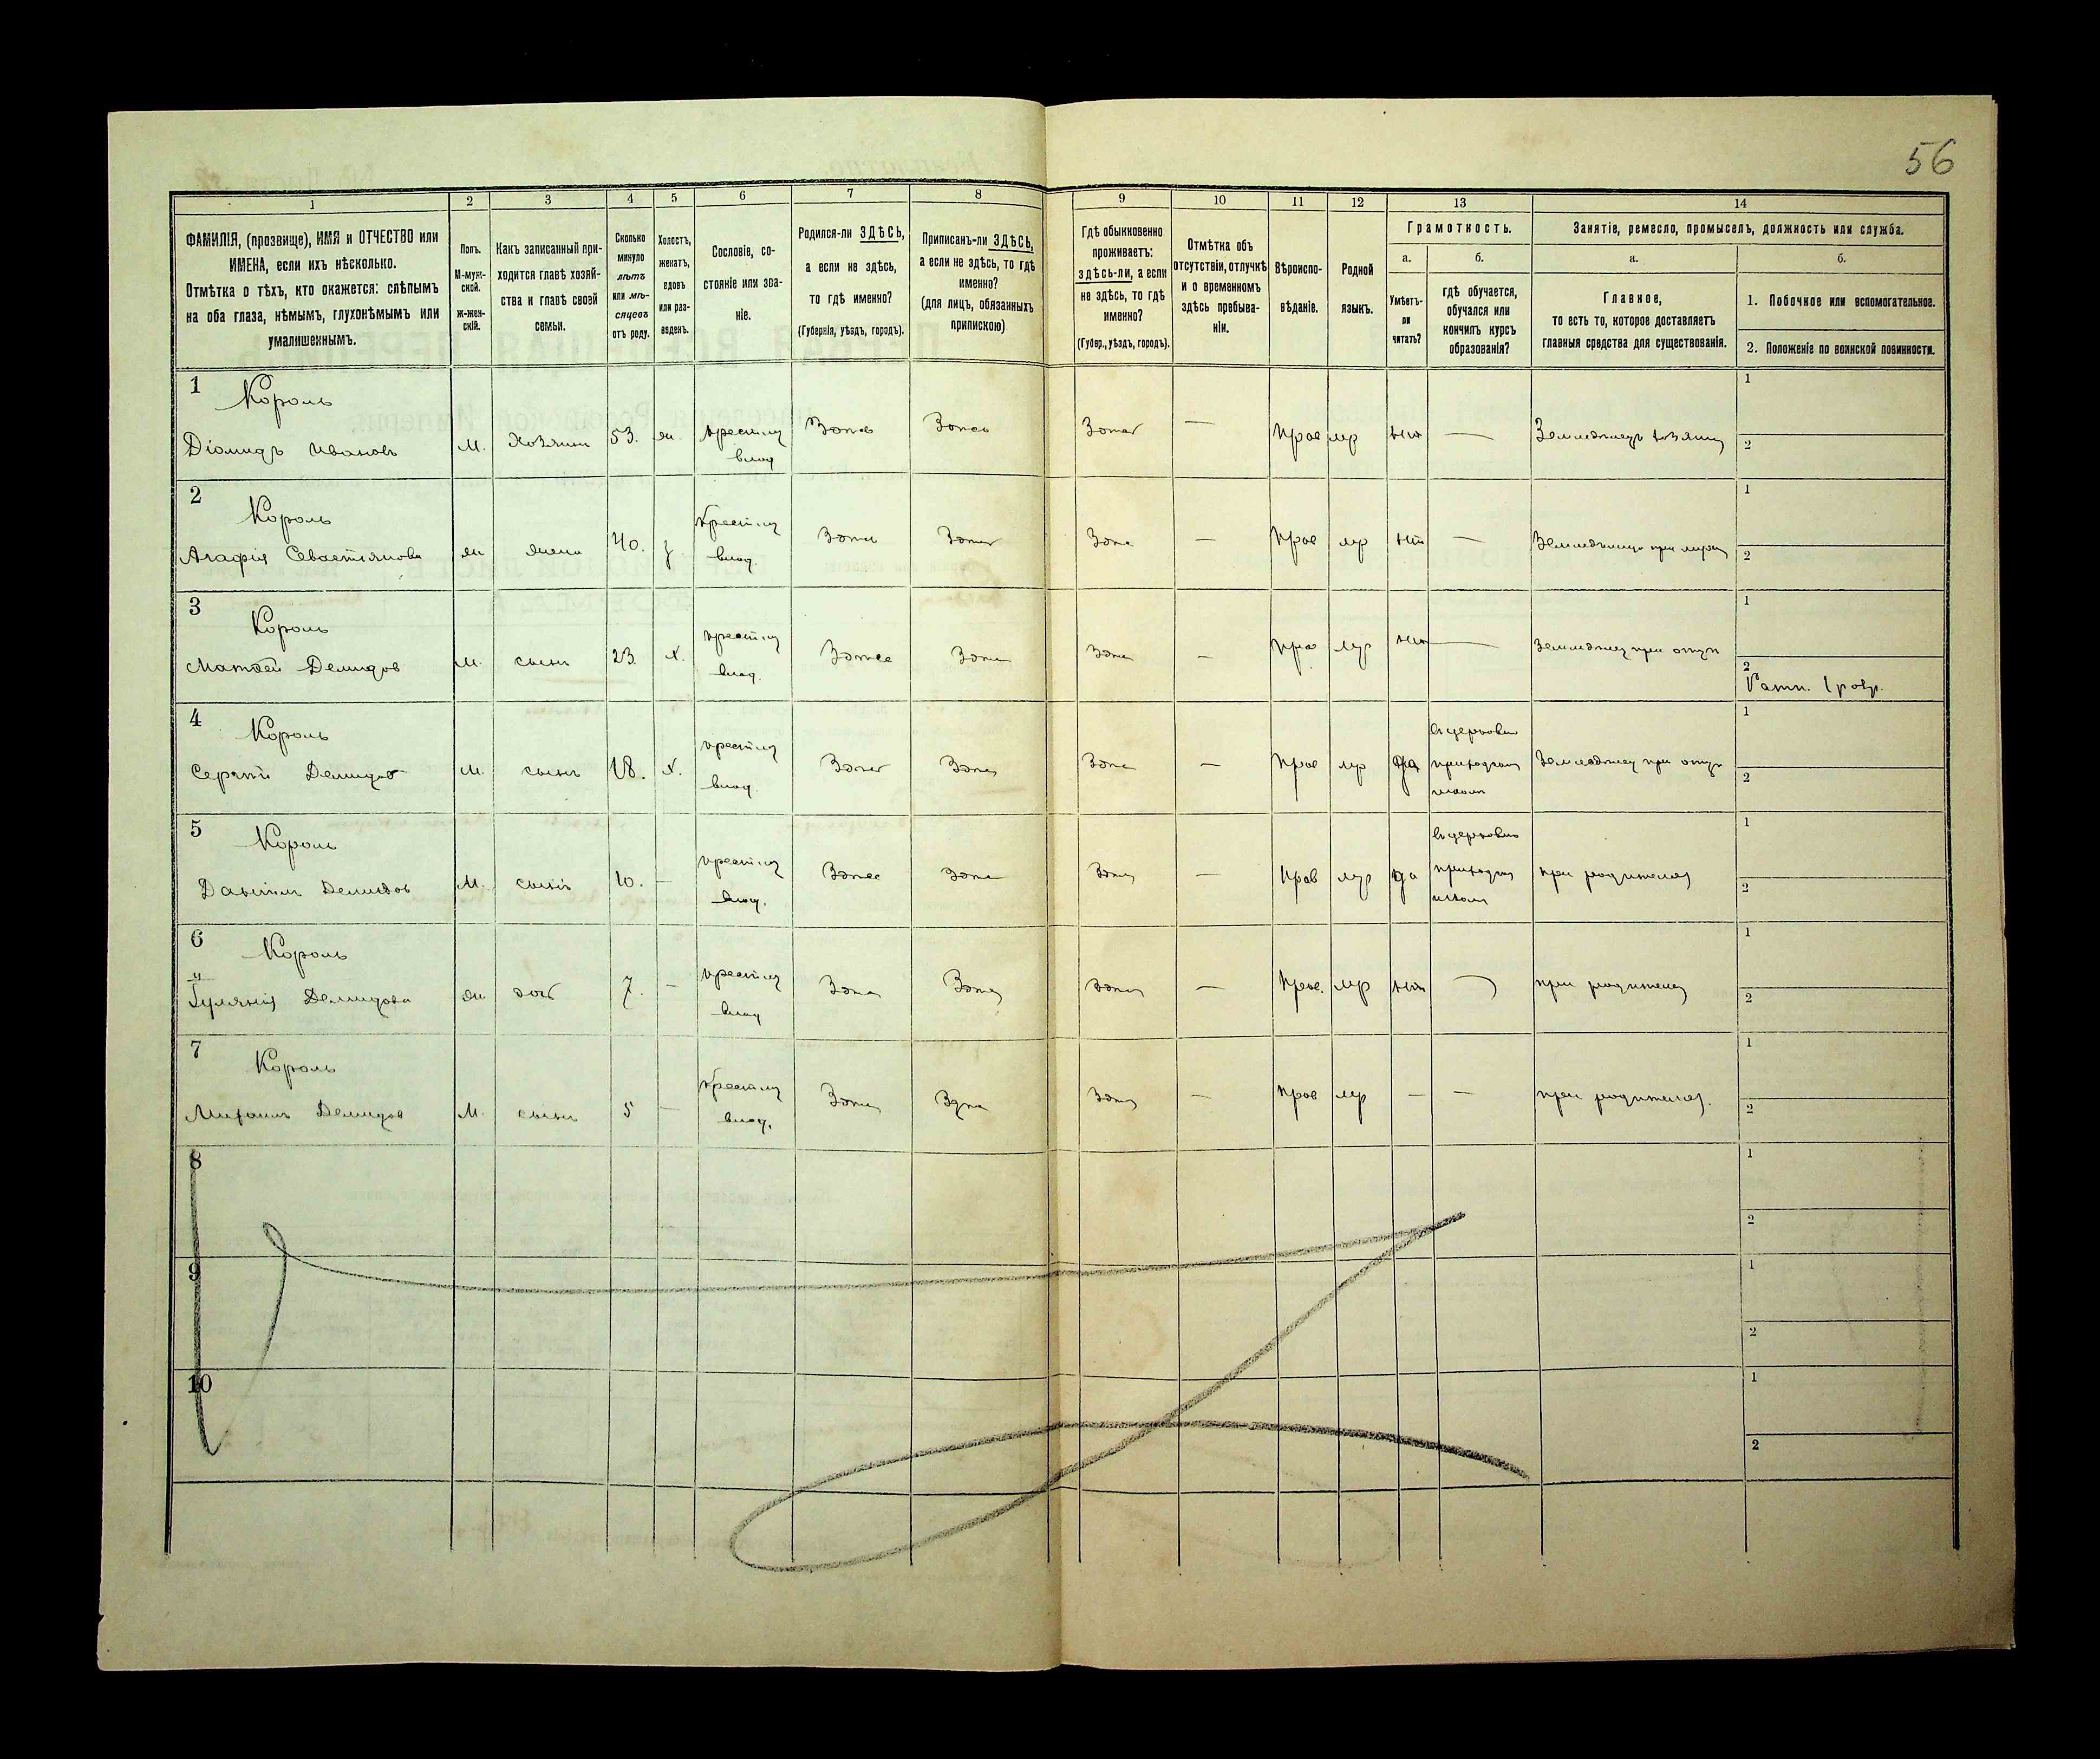 56
1 2 3 4 5 6 7 8 9 10 11 12 13 14
ФАМИЛІЯ, (прозвище), ИМЯ и ОТЧЕСТВО или
ИМЕНА, если ихъ нѣсколько.
Отмѣтка о тѣхъ, кто окажется: слѣпымъ
на оба глаза, нѣмымъ, глухонѣмымъ или
умалишеннымъ.
Полъ.
М-муж-
ской.
Ж-жен-
скій.
Какъ записанный при-
ходится главѣ хозяй-
ства и главѣ своей
семьи.
Сколько
минуло
лѣтъ
или мѣ-
сяцевъ
отъ роду.
Холостъ,
женатъ,
вдовъ
или раз-
веденъ.
Сословіе, со-
стояніе или зва-
ніе.
Родился-ли ЗДѢСЬ,
а если не здѣсь,
то гдѣ именно?
(Губернія, уѣздъ, городъ).
Приписанъ-ли ЗДѢСЬ,
а если не здѣсь, то гдѣ
именно?
(для лицъ, обязанныхъ
припискою)
Гдѣ обыкновенно
проживаетъ:
здѣсь-ли, а если
не здѣсь, то гдѣ
именно?
(Губер., уѣздъ, городъ).
Отмѣтка объ
отсутствіи, отлучкѣ
и о временномъ
здѣсь пребыва-
ніи.
Вѣроиспо-
вѣданіе.
Родной
языкъ.
Грамотность.
а.
Умѣетъ-
ли
читать?
б.
гдѣ обучается,
обучался или
кончилъ курсъ
образованія?
Занятіе, ремесло, промыселъ, должность или служба.
а.
Главное,
то есть то, которое доставляетъ
главныя средства для существованія.
б.
1. Побочное или вспомогательное.
2. Положеніе по воинской повинности.
1 Король
Діомидъ Ивановъ М. Хозяинъ 53. жн. крестьян
влад Здѣсь Здѣсь Здѣсь — Прав мр нѣт — Земледѣлецъ хозяин
1
2
2 Король
Агафія Севастіянова жн жена 40. з крестьян
влад. Здѣсь Здѣсь Здѣс — Прав мр нѣт —
1
2
3 Король
Матвей Демидов М. сынъ 23. х. крестьян
влад. Здѣсь Здѣс Здѣс — Прав мр нѣт — Земледѣлец при отцѣ
1
2
Ратн. 1 разр.
4 Король
Сергѣй Демидов М. сынъ 18. х. крестьян
влад. Здѣсь Здѣс Здѣс — Прав мр да
въ церковно
приходской
школѣ
Земледѣлец при отцѣ
1
2
5 Король
Даніилъ Демидов М. сынъ 10. — крестьян
влад. Здѣсь Здѣс Здѣс — Прав мр да
въ церковно
приходск
школѣ
при родителях
1
2
6 Король
Іулянія Демидова жн. доч 7. — крестьян
влад Здѣс Здѣс Здѣс — Прав. мр нѣт — при родителях
1
2
7 Король
Михаилъ Демидов М. сынъ 5 — крестьян
влад. Здѣс Здѣс Здѣс — Прав мр — — при родителях.
1
2
8
1
2
9
1
2
10
1
2